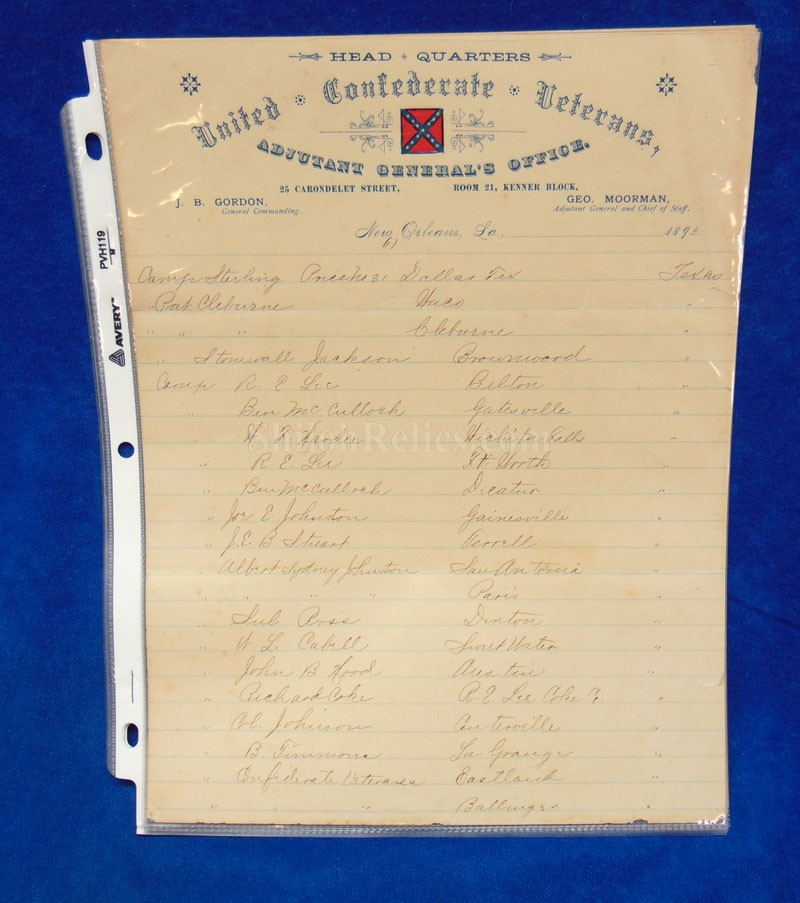 HEAD QUARTERS
United Confederate Veterans,
ADJUTANT GENERAL'S OFFICE.
25 CARONDELET STREET, ROOM 21, KENNER BLOCK,
J. B. GORDON, GEO. MOORMAN,
General Commanding. Adjutant General and Chief of Staff.
New Orleans, La., 189
Camp Sterling Dallas Tex Texas
" Pat Cleburne Waco "
" " " Cleburne "
" Stonewall Jackson Brownwood "
Camp R. E Lee Belton "
" Ben McCulloch Gatesville "
" W Wichita Falls "
" R. E. Lee Ft Worth "
" Ben McCulloch Decatur "
" Joe E. Johnston Gainesville "
" J. E. B. Stuart Terrell "
" Albert Sydney Johnston San Antonia "
" " " " Paris "
" Sul Ross Denton "
" W. L. Cabell Sweet Water "
" John B. Hood Austin "
" Richard Coke R. E. Lee Coke C. "
" Col. Johnson Centerville "
" B. Timmons La Grange "
" Confederate Veterans Eastland "
" " " Ballinger "
PVH119
AVERY
ShilohRelics.com